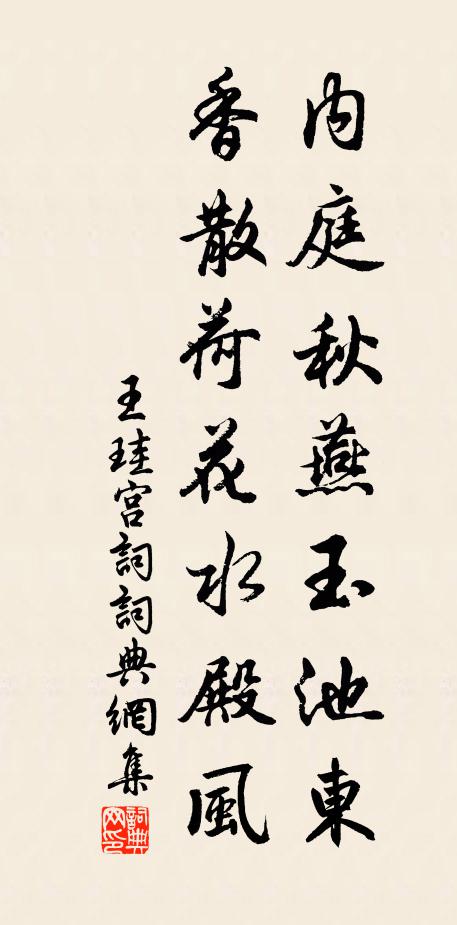 內庭秋燕玉池東
香散荷花水殿風
王珪宮詞詞典網集
詞典網印